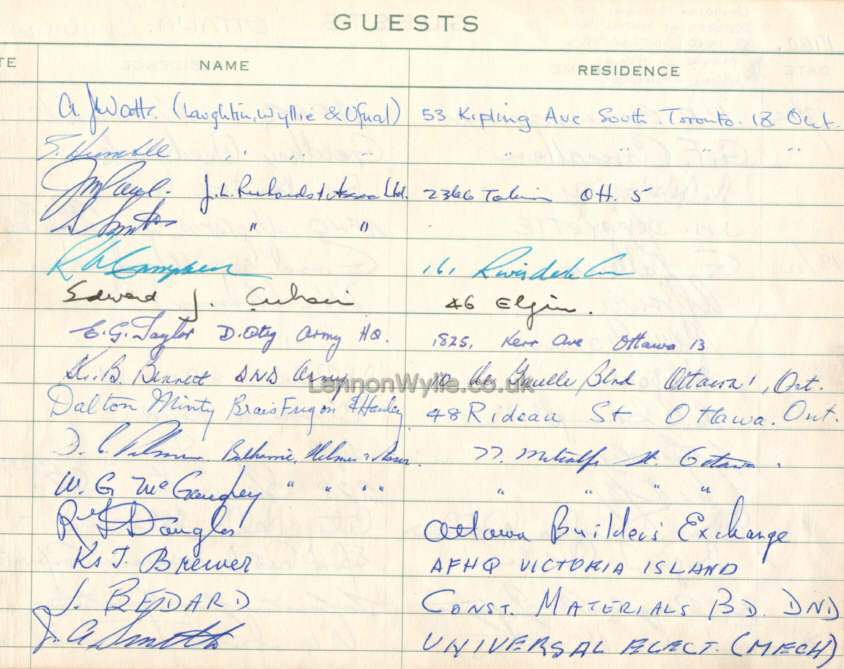 GUESTS
TE NAME RESIDENCE
A. J. Watts. (Laughlin, Wyllie & Ufnal) 53 Kipling Ave South. Toronto. 18 Ont.
E. " " " " " "
J. L. Richards & Assoc Ltd. 2366 Ott. 5
" "
R Campbell 161 Riverdale
Edward J. 46 Elgin.
E. G. Taylor D. Army HQ. 1825, Kerr Ave Ottawa 13
K. B. Bennett DND Army de Gaulle Blvd Ottawa 1, Ont.
LennonWylie.co.uk
Dalton Minty Brais Frigon & Hanley 48 Rideau St Ottawa. Ont.
D. C. Balharrie, Helmer & 77 Metcalfe St. Ottawa.
W. G. McGaughey " " " " " " " "
R Douglas Ottawa Builders Exchange
K. T. Brewer AFHQ VICTORIA ISLAND
J. BEDARD CONST. MATERIALS BD. DND
J. A. Smith UNIVERSAL ELECT. (MECH)